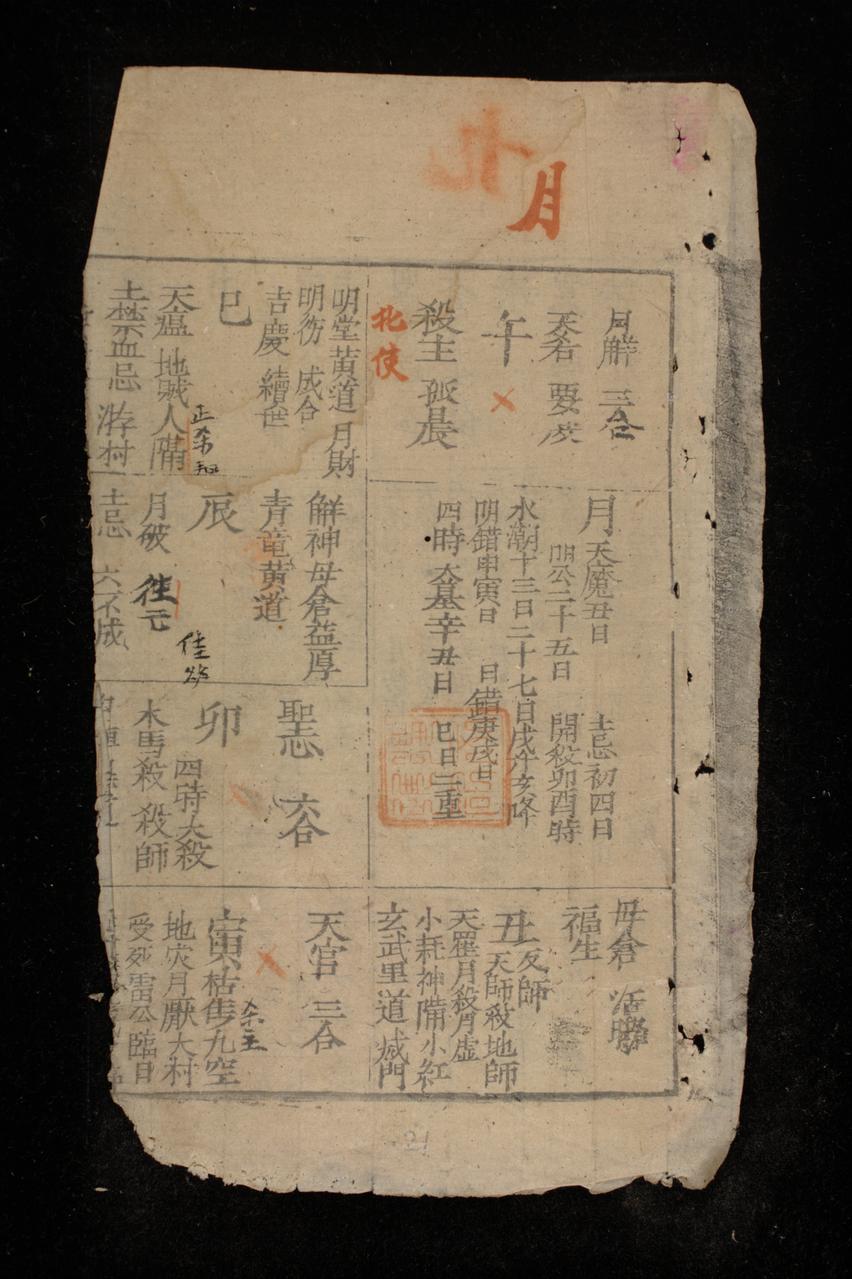 九
月
月解 三合
天岩 要安
午
殺主 孤辰
北使
月 天魔丑日 土忌初四日
開公二十五日 開殺卯酉時
水潮十三日二十七日戌午亥降
阴錯甲寅日 日錯庚戌日
四時大墓辛丑日 巳日三重
母倉 活聯
福生
丑 反師
天師殺地師
天罡月殺月虚
小耗神隔小紅
玄武黒道 滅門
明堂黄道 月財
明彷 成合
吉慶 續世
巳
天瘟 地賊人隔
土禁血忌 游村
解神母倉益厚
青竜黄道
辰
月破 徃亡
土忌 六不成
聖忌 六合
卯
四時大殺
木馬殺 殺師
天官 三合
寅 枯焦九空
地灾月厭大村
受死雷公臨日